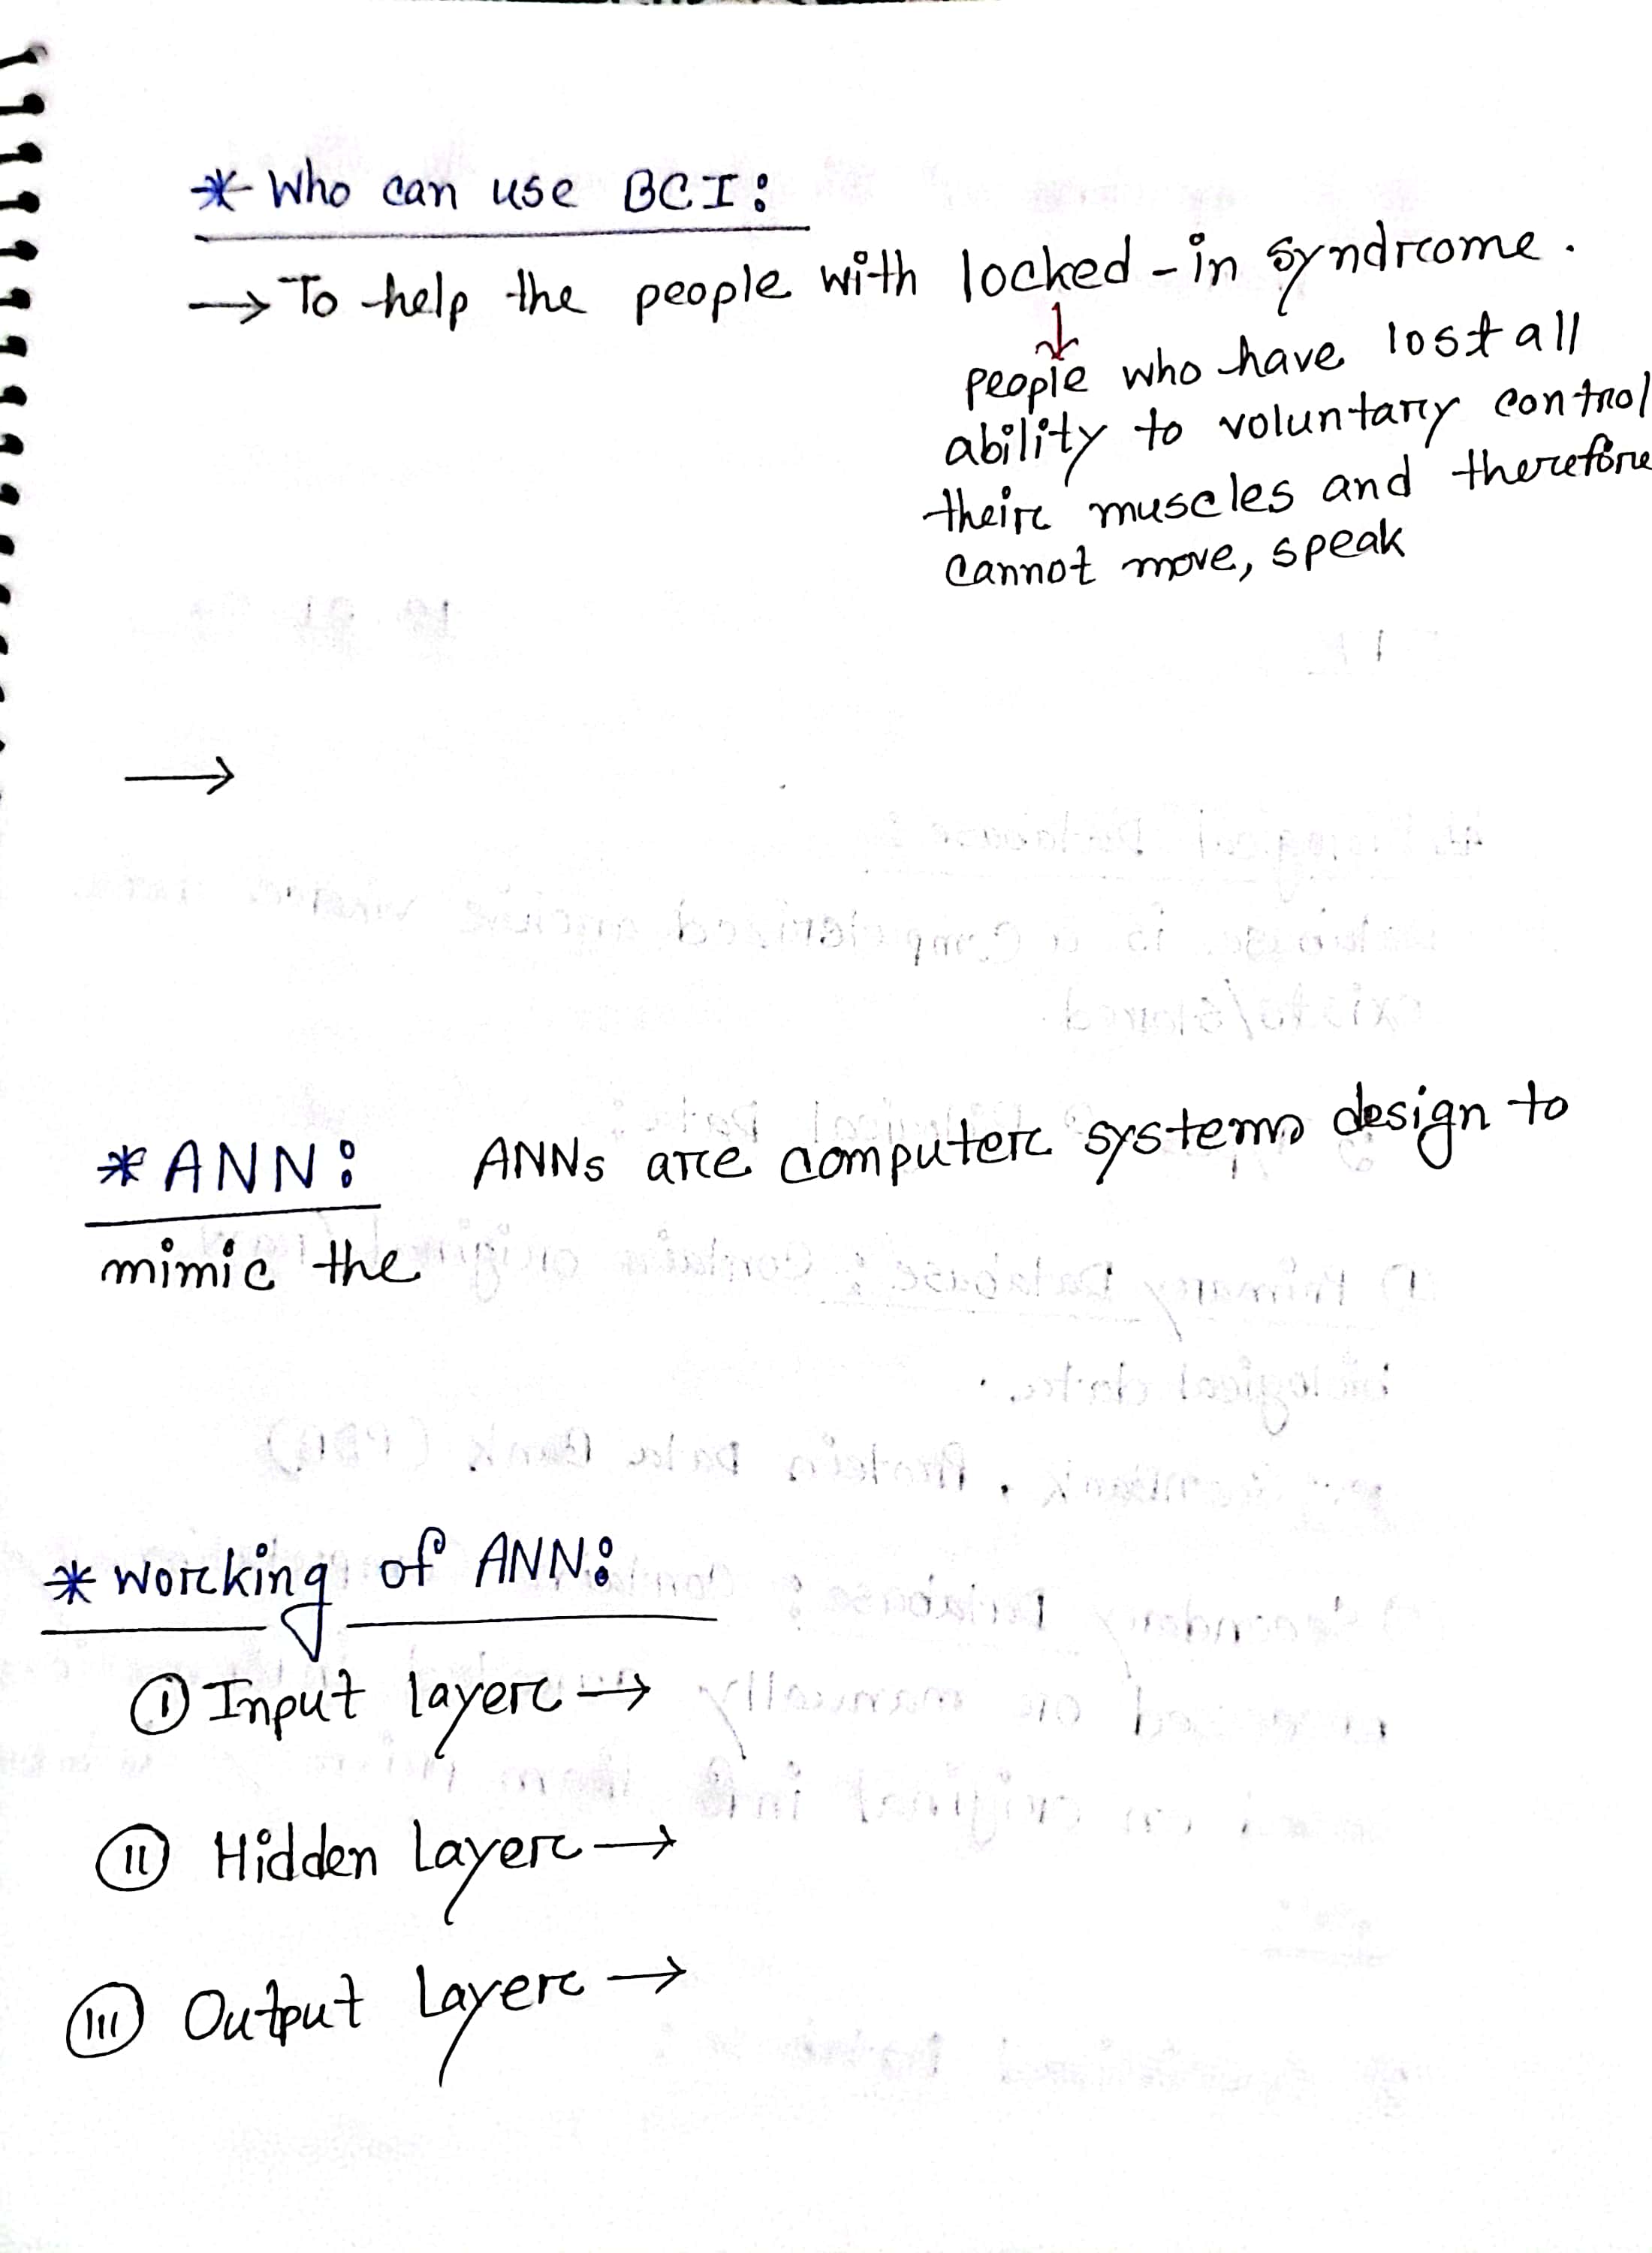 * Who can use BCI:
→ To help the people with locked-in syndrome.
↓
people who have lost all
ability to voluntary control
their muscles and therefore
cannot move, speak
→
* ANN: ANNs are computer systems design to
mimic the
* Working of ANN:
(i) Input layer →
(ii) Hidden Layer →
(iii) Output Layer →